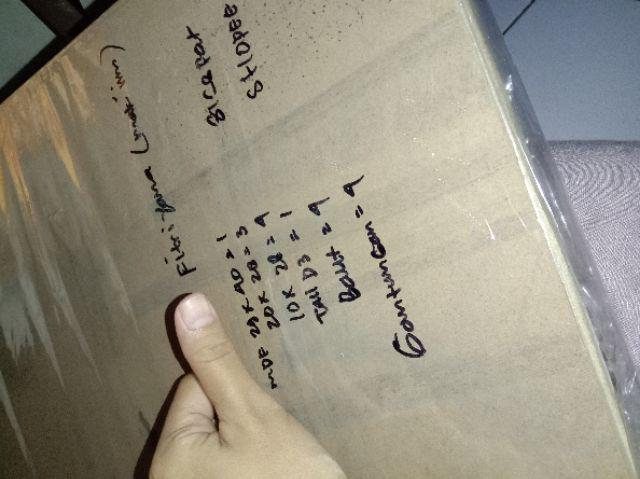 Fitriyana (mati.im)
BICEPAT
STIOPEE
MDF 28 x 40 = 1
20 x 28 = 3
10 x 28 = 9
Tali D3 = 1
Baut = 9
Gantungan = 9